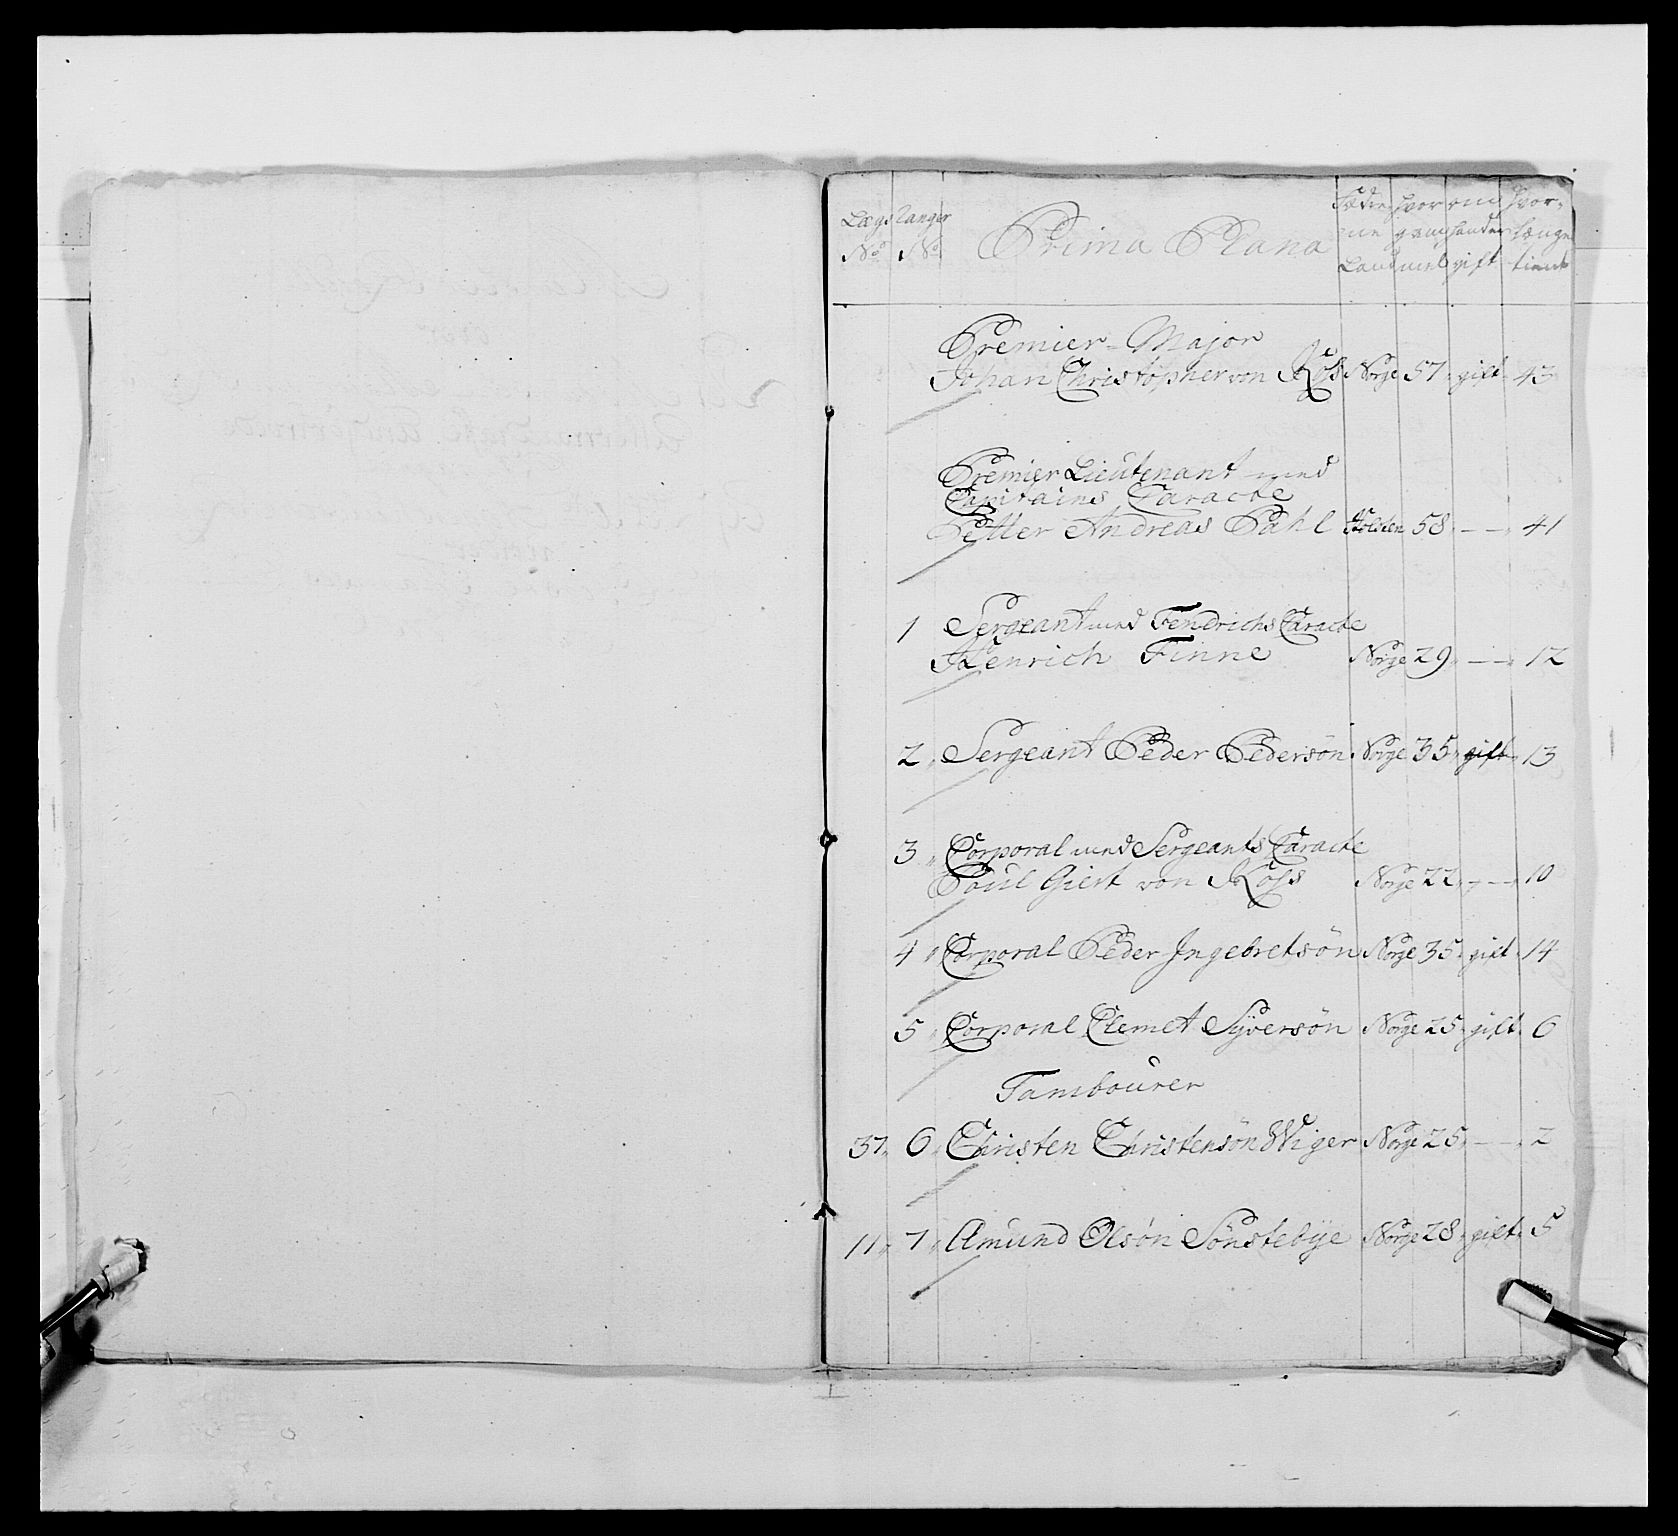 Lægs Ranger Prima Plana Fædre- hvor om hvor-
No No ne gam- handr længe
Land mel gift tient
Premier-Major
Johan Christopher von Koss Norge 57 gift 43
Premier Lieutenant med
Capitains Caracte
Petter Andreas Pahl Holsten 58 — 41
1 Sergeant med Fendrichs Caracte
Henrich Finne Norge 29 — 12
2 Sergeant Peder Pedersön Norge 35 gift 13
3 Corporal med Sergeants Caracte
Poul Giert von Koss Norge 22 — 10
4 Corporal Peder Jngebretsön Norge 35 gift 14
5 Corporal Clemet Syversön Norge 25 gift 6
Tambourer
37 6 Christen Christensön Wiger Norge 25 — 2
11 7 Amund Olsön Sönstebye Norge 28 gift 5